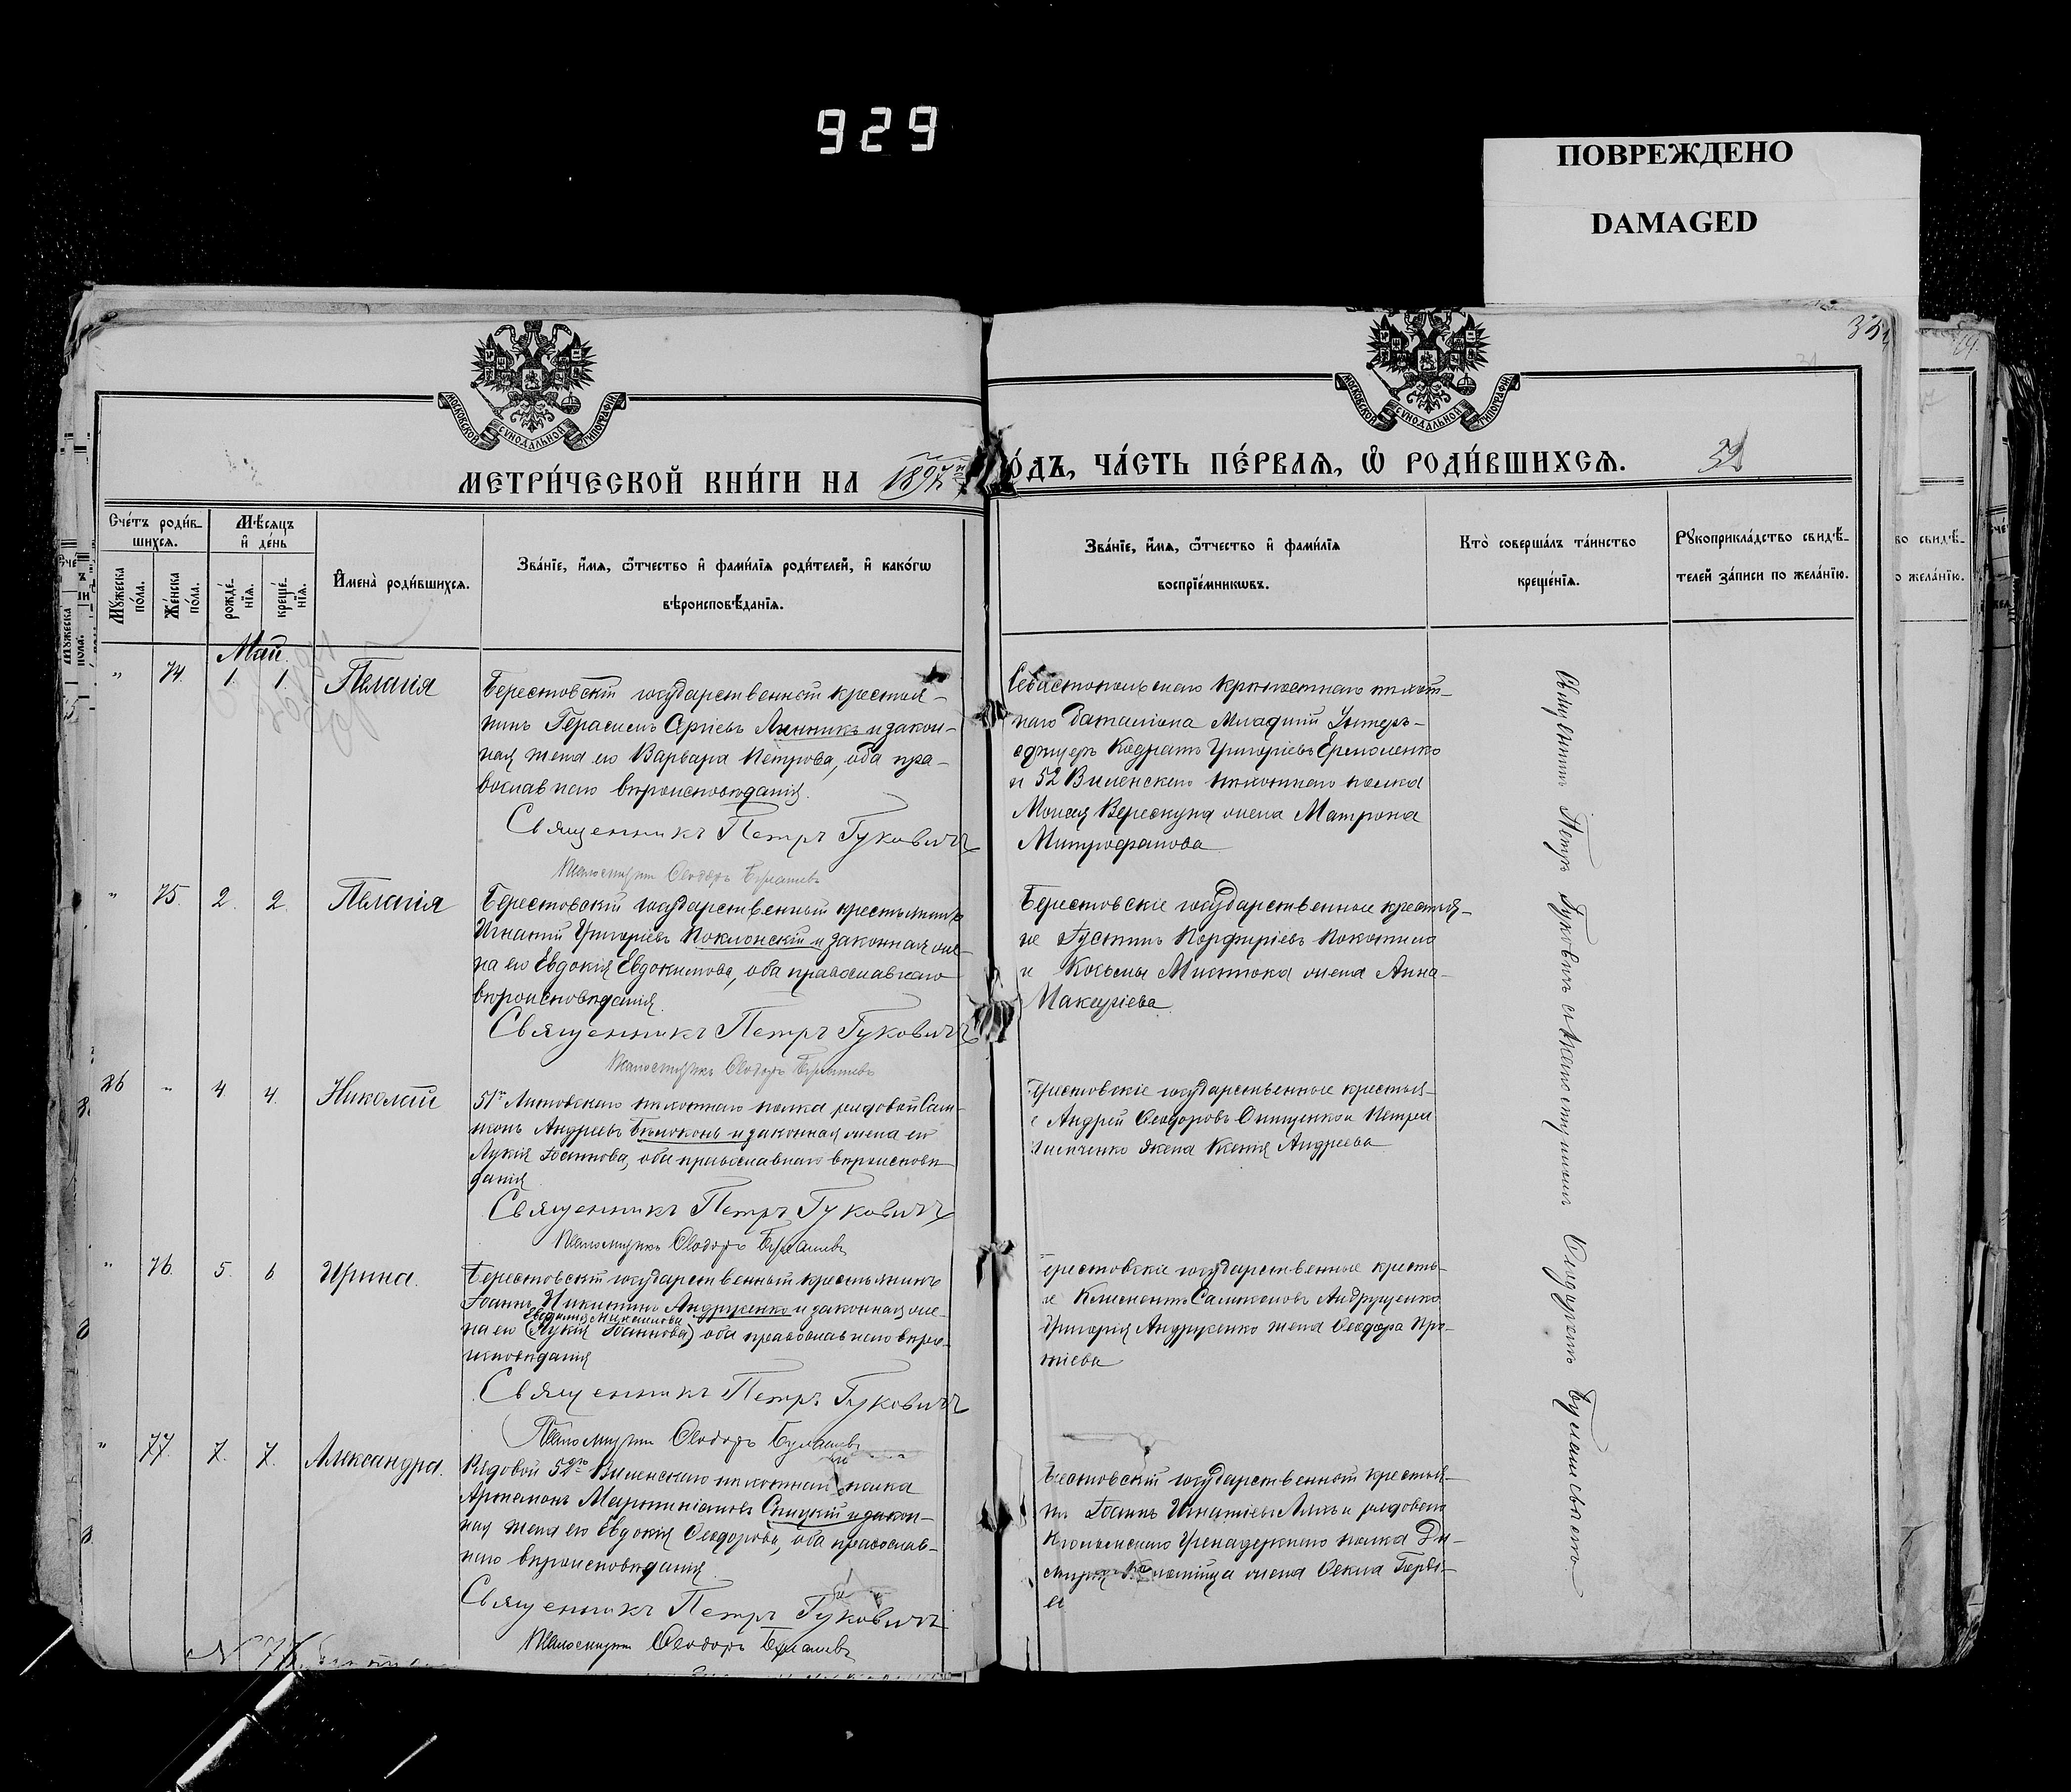 929
ПОВРЕЖДЕНО
DAMAGED
МОСКОВСКОЙ СѴНОДАЛЬНОЙ ТИПОГРАФІИ
МОСКОВСКОЙ СѴНОДАЛЬНОЙ ТИПОГРАФІИ
МЕТРИ́ЧЕСКОЙ КНИ́ГИ НА 1897
О́ДЪ, ЧА́СТЬ ПЕ́РВАЯ, Ѡ҆ РОДИ́ВШИХСЯ.
Сче́тъ роди́вшихся.
Мѣ́сяцъ и҆ де́нь
Мꙋ́жеска по́ла.
Же́нска по́ла.
рожде́нїя.
креще́нїя.
И҆мена̀ роди́вшихся.
Зва́нїе, и҆́мя, ѻ҆́тчество и҆ фами́лїя роди́телей, и҆ како́гѡ
вѣроисповѣ́данїя.
Зва́нїе, и҆́мя, ѻ҆́тчество и҆ фами́лїя
воспрїе́мникѡвъ.
Кто̀ соверша́лъ та́инство
креще́нїя.
Рꙋкоприкла́дство свидѣ́-
телей за́писи по жела́нїю.
Май.
" 74. 1. 1. Пелагія
Берестовскій государственный крестья-
нинъ Герасимъ Сергіевъ Линникъ и закон-
ная жена его Варвара Петрова, оба пра-
вославнаго вѣроисповѣданія.
Священникъ Петръ Гуковичъ
Псаломщикъ Ѳеодоръ Булашевъ
Севастопольскаго крѣпостнаго пѣхот-
наго баталіона Младшій Унтеръ-
офицеръ Кодратъ Григоріевъ Ермоленко
и 52 Виленскаго пѣхотнаго полка
Моисея Верескуна жена Матрона
Митрофанова
" 75. 2. 2. Пелагія
Берестовскій государственный крестьянинъ
Игнатій Григоріевъ Поклонскій и законная же-
на его Евдокія Евдокимова, оба православнаго
вѣроисповѣданія.
Священникъ Петръ Гуковичъ
Псаломщикъ Ѳеодоръ Булашевъ
Берестовскіе государственные крестья-
не Іустинъ Порфиріевъ Покотило
и Косьмы жена Анна
Макаріева
76 " 4. 4. Николай
51го Литовскаго пѣхотнаго полка рядовой Сам-
сонъ Андреевъ Бѣлоконь и законная жена его
Лукія Іоаннова, оба православнаго вѣроисповѣ-
данія.
Священникъ Петръ Гуковичъ
Псаломщикъ Ѳеодоръ Булашевъ
ерестовскіе государственные крестья-
Андрей Ѳеодоровъ Онищенко и Петра
жена Ксенія Андреева
" 76. 5. 6 Ирина.
Берестовскій государственный крестьянинъ
Іоаннъ Никитинъ Андрущенко и законная же-
Евдокія Михаилова
на его (Лукія Іоаннова) оба православнаго вѣро-
исповѣданія
Священникъ Петръ Гуковичъ
Псаломщикъ Ѳеодоръ Булашевъ
ерестовскіе государственные кресть-
Климентъ Самсоновъ Андрущенко
Григорія Андрущенко жена Ѳеодора
" 77. 7. 7. Александра.
Рядовой 52го Виленскаго пѣхотнаго полка
Артамонъ Мартиніановъ Спицкій и закон-
ная жена его Евдокія Ѳеодорова, оба православ-
наго вѣроисповѣданія.
Священникъ Петръ Гуковичъ
Псаломщикъ Ѳеодоръ Булашевъ
государственный крестья-
нъ Іоаннъ Игнатіевъ и рядоваго
Гренадерскаго полка Ди-
митрія жена Ѳекла
Священникъ Петръ Гуковичъ съ псаломщикомъ Ѳеодоромъ Булашевскимъ